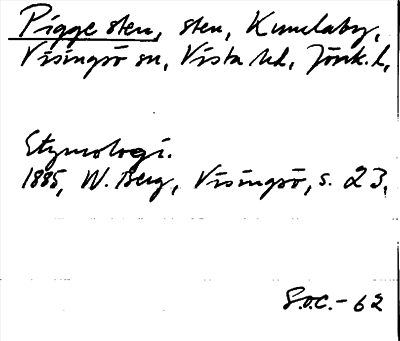 Pigge sten, sten, Kumlaby,
Visingsö sn, Vista hd, Jönk. l,
Etymologi.
1885, W. Berg, Visingsö, s. 23.
S.O.C. - 62